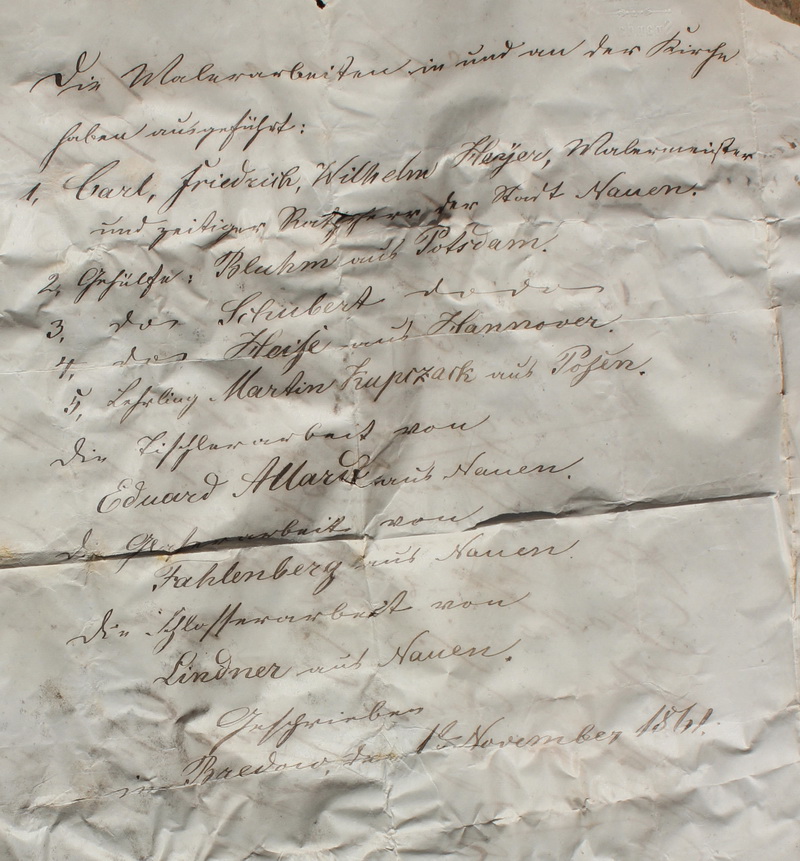 Die Malerarbeiten in und an der Kirche
haben ausgeführt:
1, Carl, Friedrich, Wilhelm Heyer, Malermeister
und zeitiger Rathsherr der Stadt Nauen.
2, Gehülfe: Bluhm aus Potsdam.
3, do Schubert do do
4, do Heise aus Hannover.
5, Lehrling Martin Kupczack aus Posen.
Die Tischlerarbeit von
Eduard Allard aus Nauen.
Die Glaserarbeit von
Fahlenberg aus Nauen.
Die Schlosserarbeit von
Lindner aus Nauen.
Geschrieben
in Bredow, den 1ten November 1861.